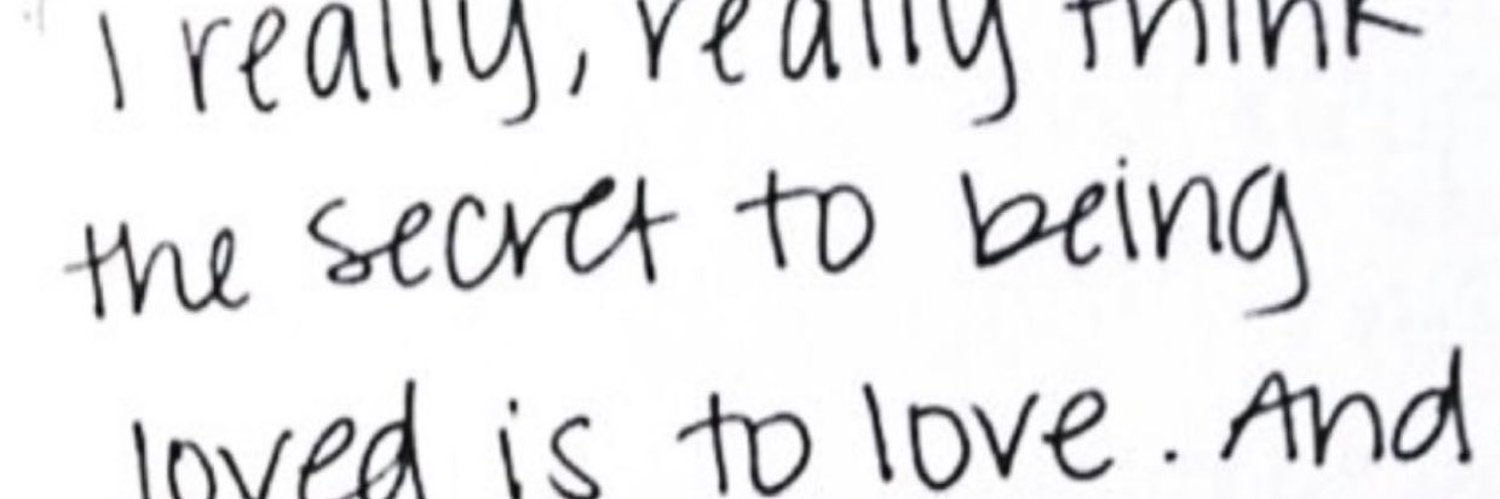 I really, really think
the secret to being
loved is to love. And